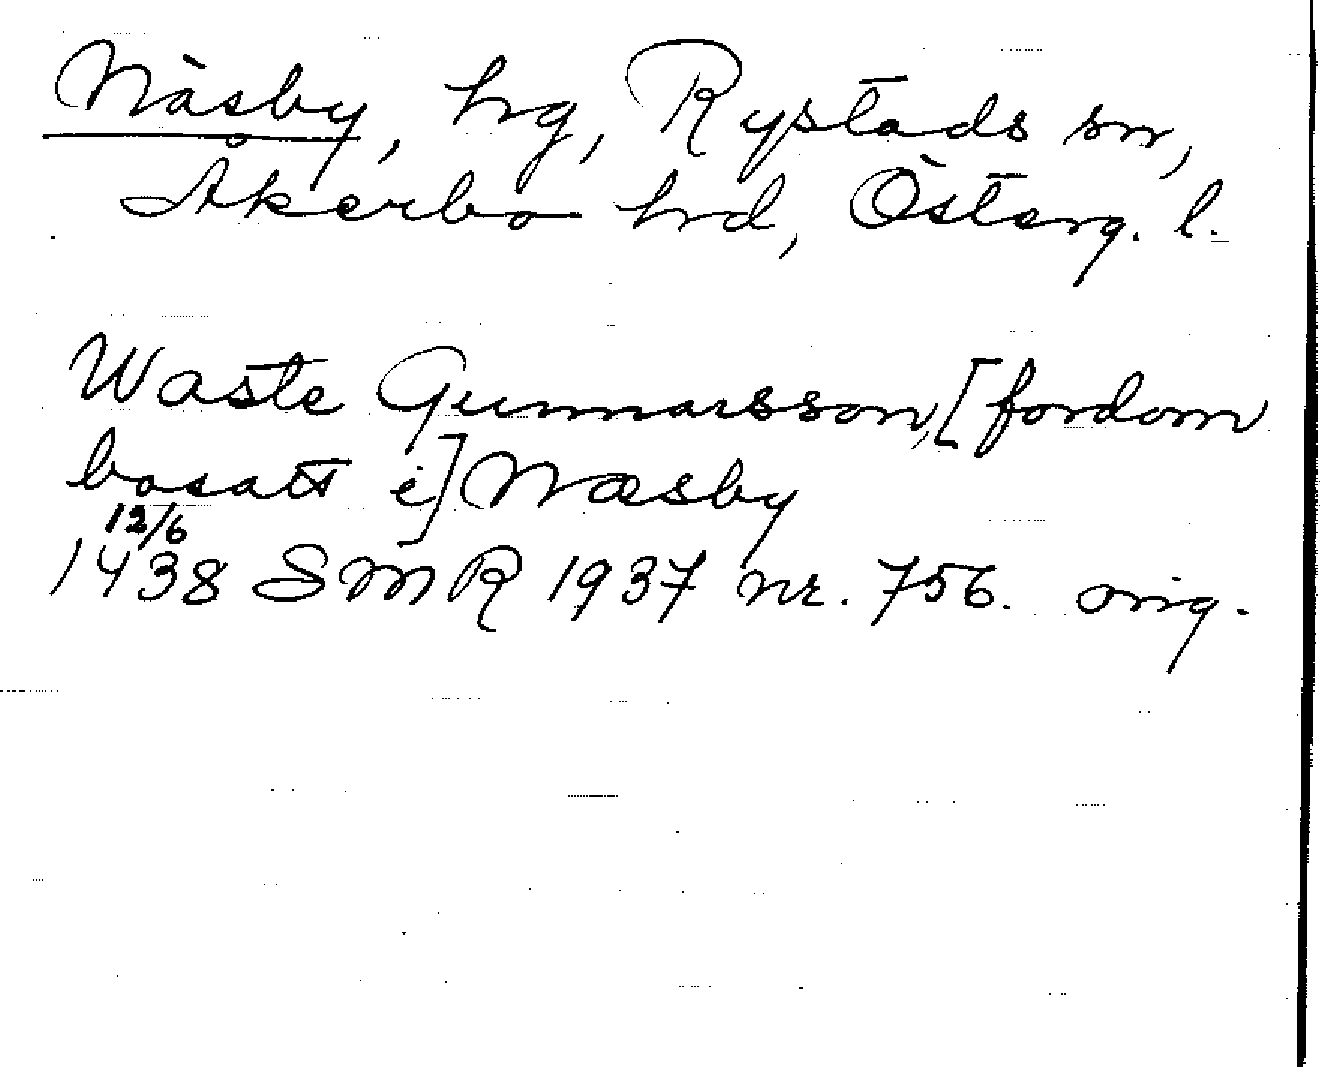 Näsby, hg, Rystads sn,
Åkerbo hd, Österg. l.
Waste Gunnarsson, [fordom
bosatt i] Næsby
12/6
1438 SMR 1937 nr. 756. orig.